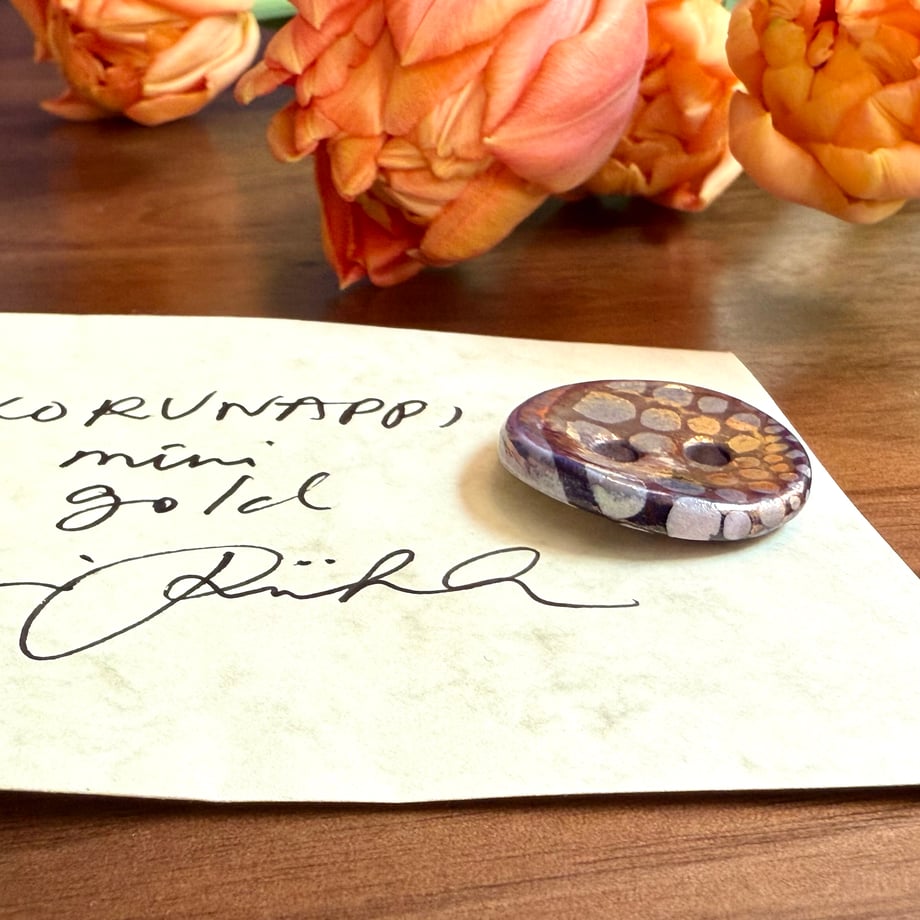 KORUNAPP,
mini
gold
J. Rühl